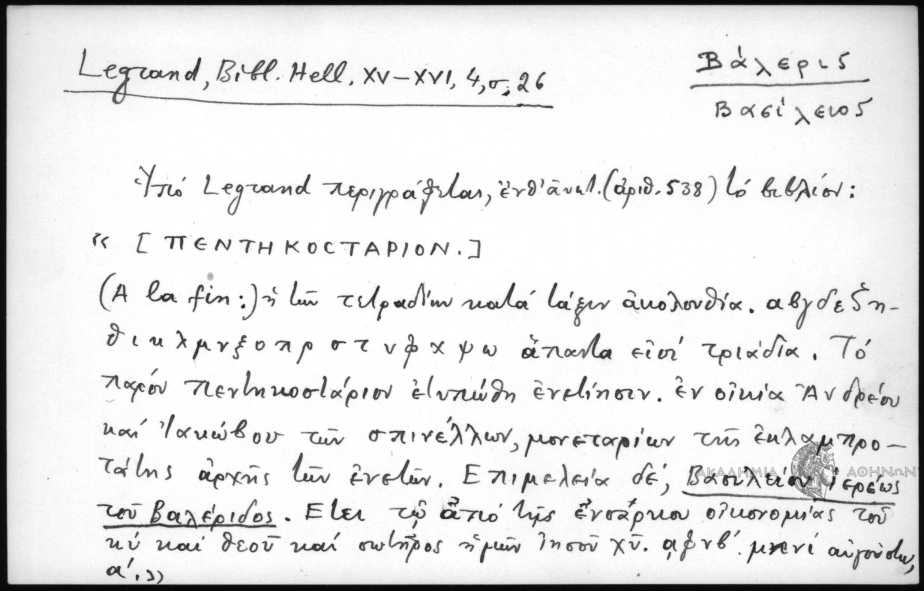 Legrand, Bibl. Hell. XV–XVI, 4, σ. 26
Βάλερις
Βασίλειος
Ὑπό Legrand περιγράφεται, ἔνθ' ἀνωτ. (ἀριθ. 538) τό βιβλίον:
« [ΠΕΝΤΗΚΟCΤΑΡΙΟΝ.]
(A la fin:) ἡ τῶν τετραδίων κατά τάξιν ἀκολουθία. αβγδεζη-
θικλμνξοπρστυφχψω ἅπαντα εἰσί τριάδια. Τό
παρόν πεντηκοστάριον ἐτυπώθη ἐνετίησιν. ἐν οἰκία Ἀνδρέου
καί Ἰακώβου τῶν σπινέλλων, μονεταρίων τῆς ἐκλαμπρο-
τάτης ἀρχῆς τῶν ἐνετῶν. Επιμελεία δέ, Βασιλείου ἱερέως
τοῦ Βαλέριδος. Ετει τῷ ἀπό τῆς ἐνσάρκου οἰκονομίας τοῦ
κύ καί θεοῦ καί σωτῆρος ἡμῶν ἰησοῦ χῦ. αφνβ' μηνί αὐγούστω,
α'.»
ΑΚΑΔΗΜΙΑ ΑΘΗΝΩΝ